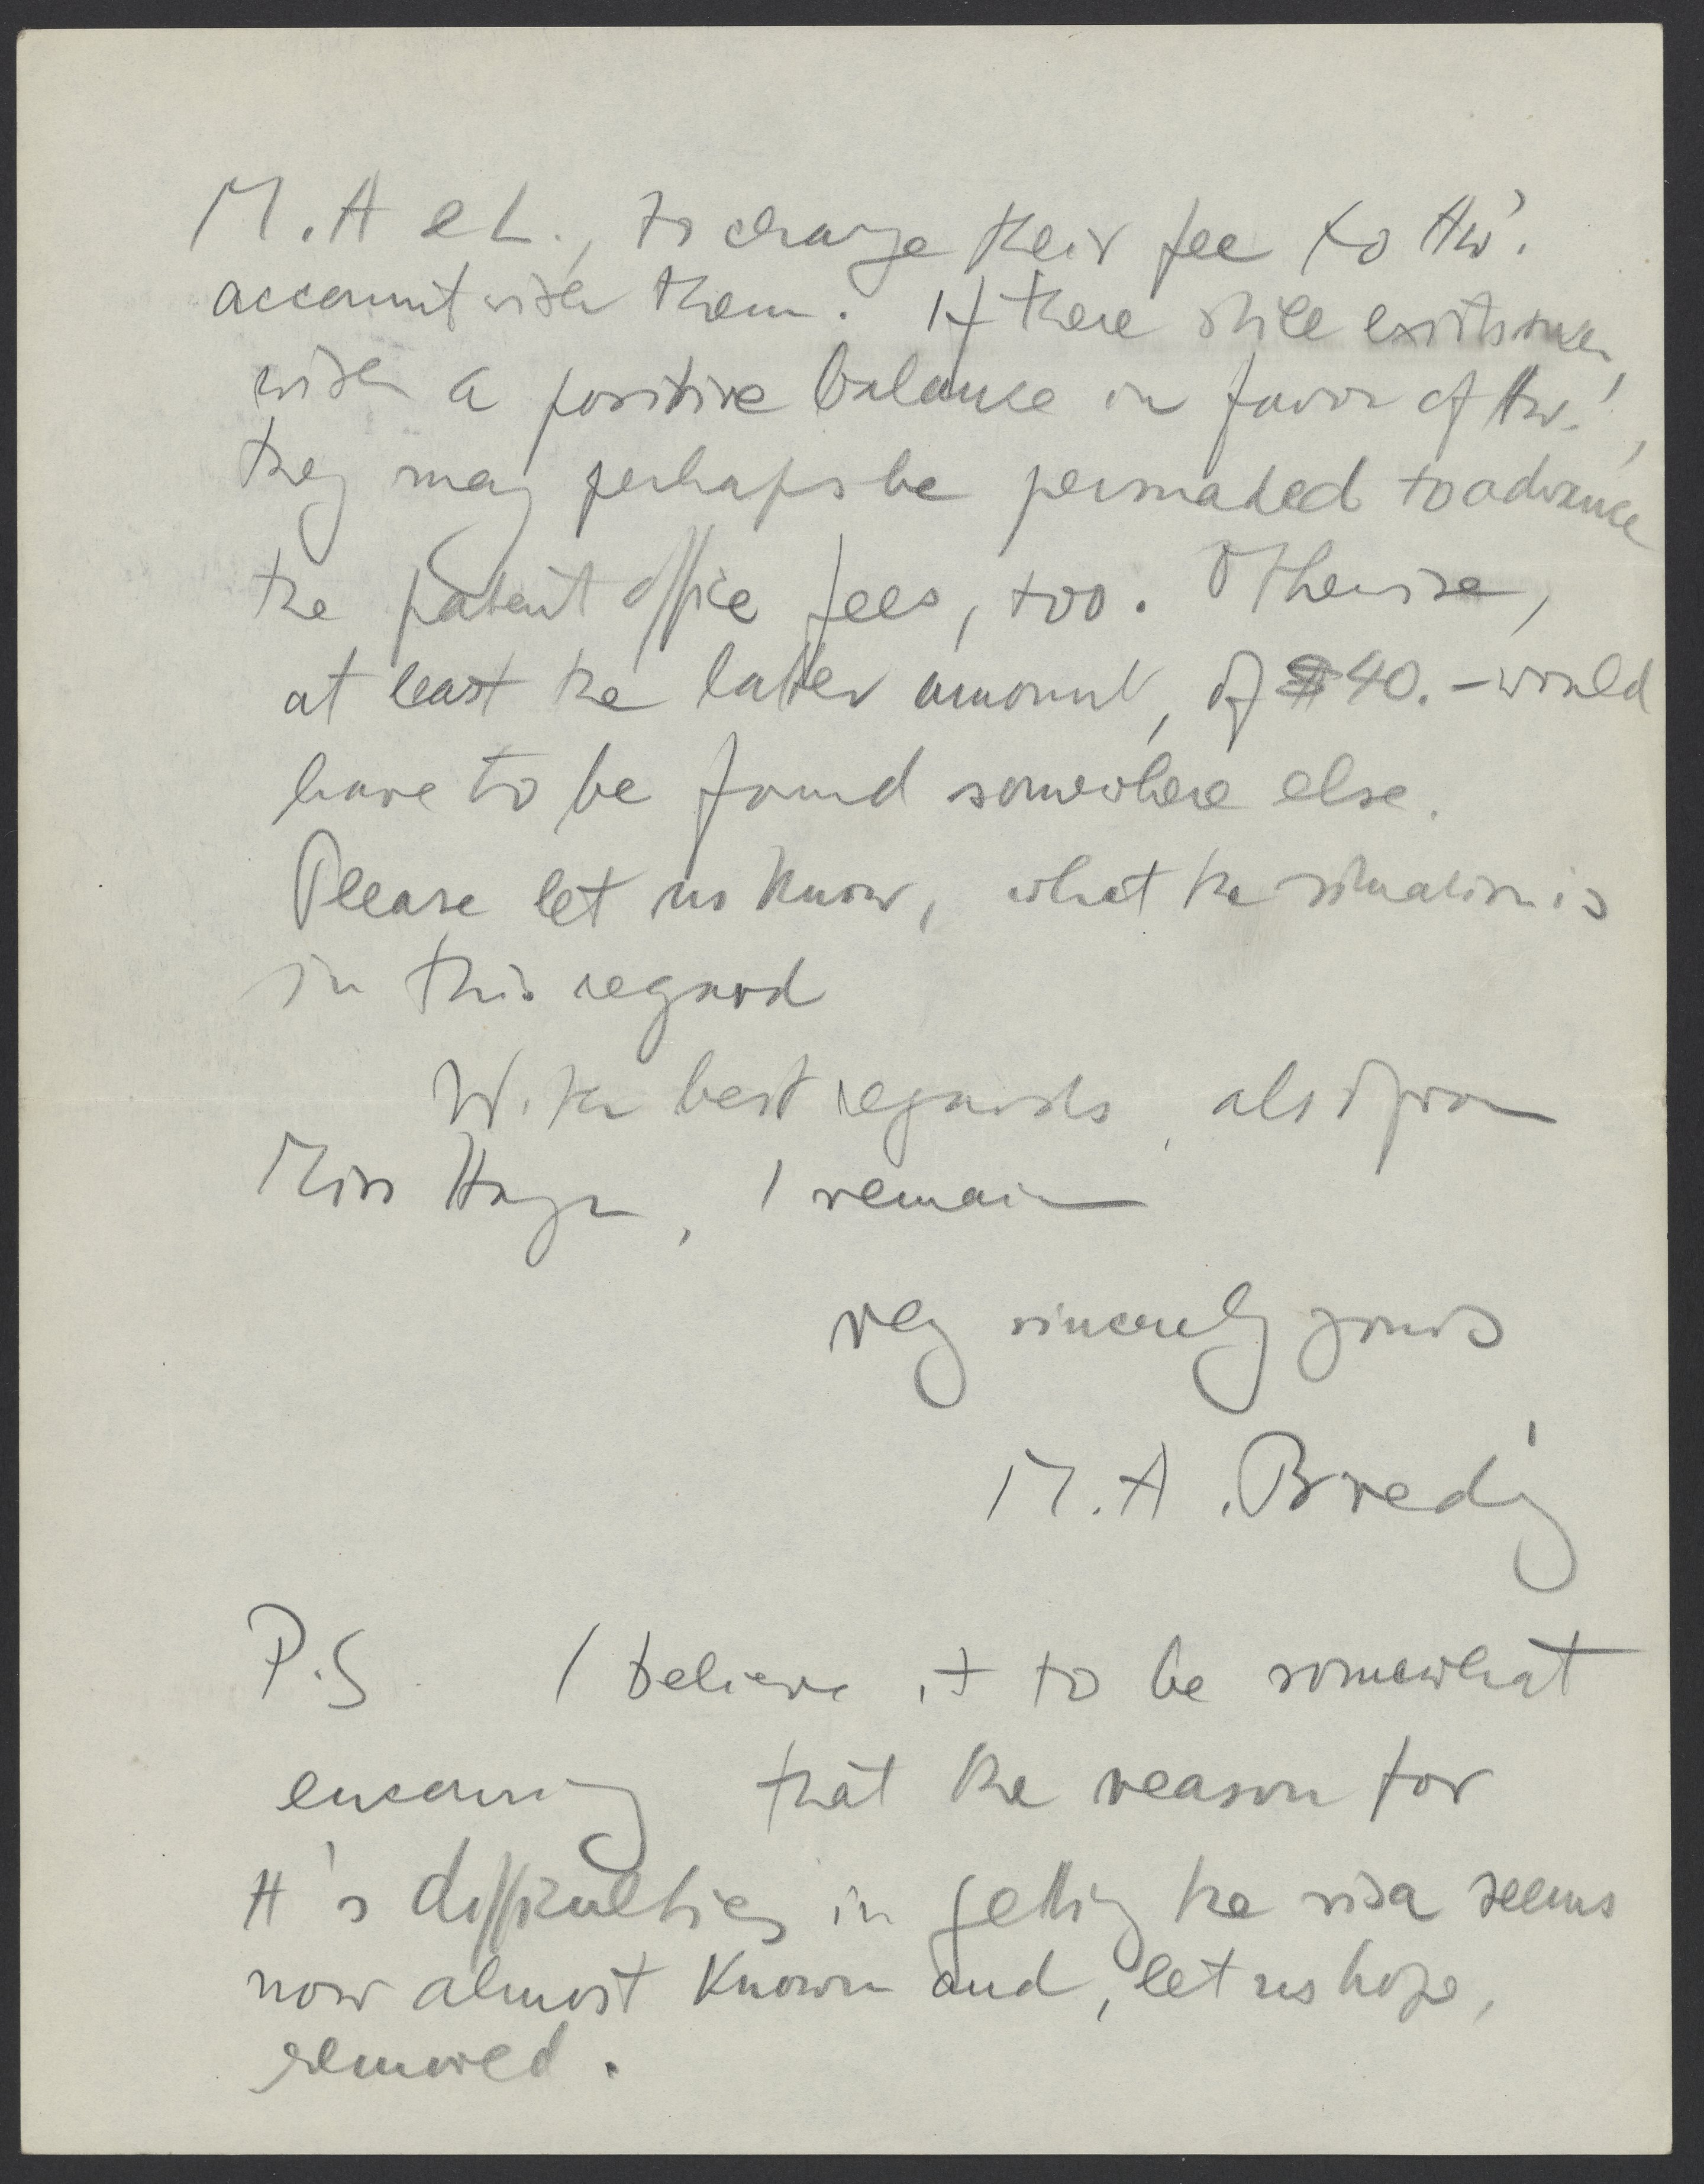 M. A & L., to charge their fee to Hw'.
account with them. If there still exists such,
with a positive balance in favor of Hw.',
they may perhaps be persuaded to advance
the patent office fees, too. Otherwise,
at least the latter amount, of $40.- would
have to be found somewhere else.
Please let us know, what the situation is
in this regard
With best regards, also from
Miss Hagn, I remain
very sincerely yours
M. A. Bredig
P.S I believe it to be somewhat
that the reason for
H's difficulties in getting the visa seems
now almost known and, let us hope,
removed.